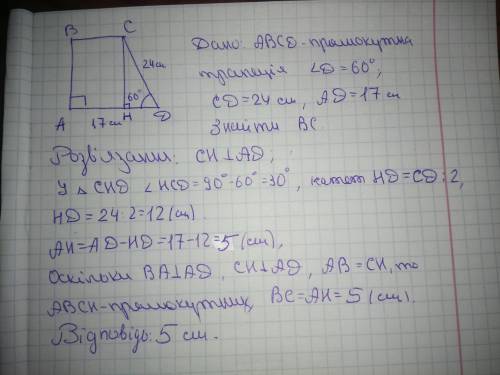 B C
Дано: ABCD-прямокутна
24см
трапеція ∠D=60°,
60°
CD=24 см, AD=17 см
A 17 см H D
Знайти BC
Розв'язання: CH⊥AD,
У △ CHD ∠HCD=90°-60°=30°, катет HD=CD:2,
HD=24:2=12(см).
AH=AD-HD=17-12=5(см),
Оскільки BA⊥AD, CH⊥AD, AB=CH, то
ABCH-прямокутник, BC=AH=5(см).
Відповідь: 5 см.